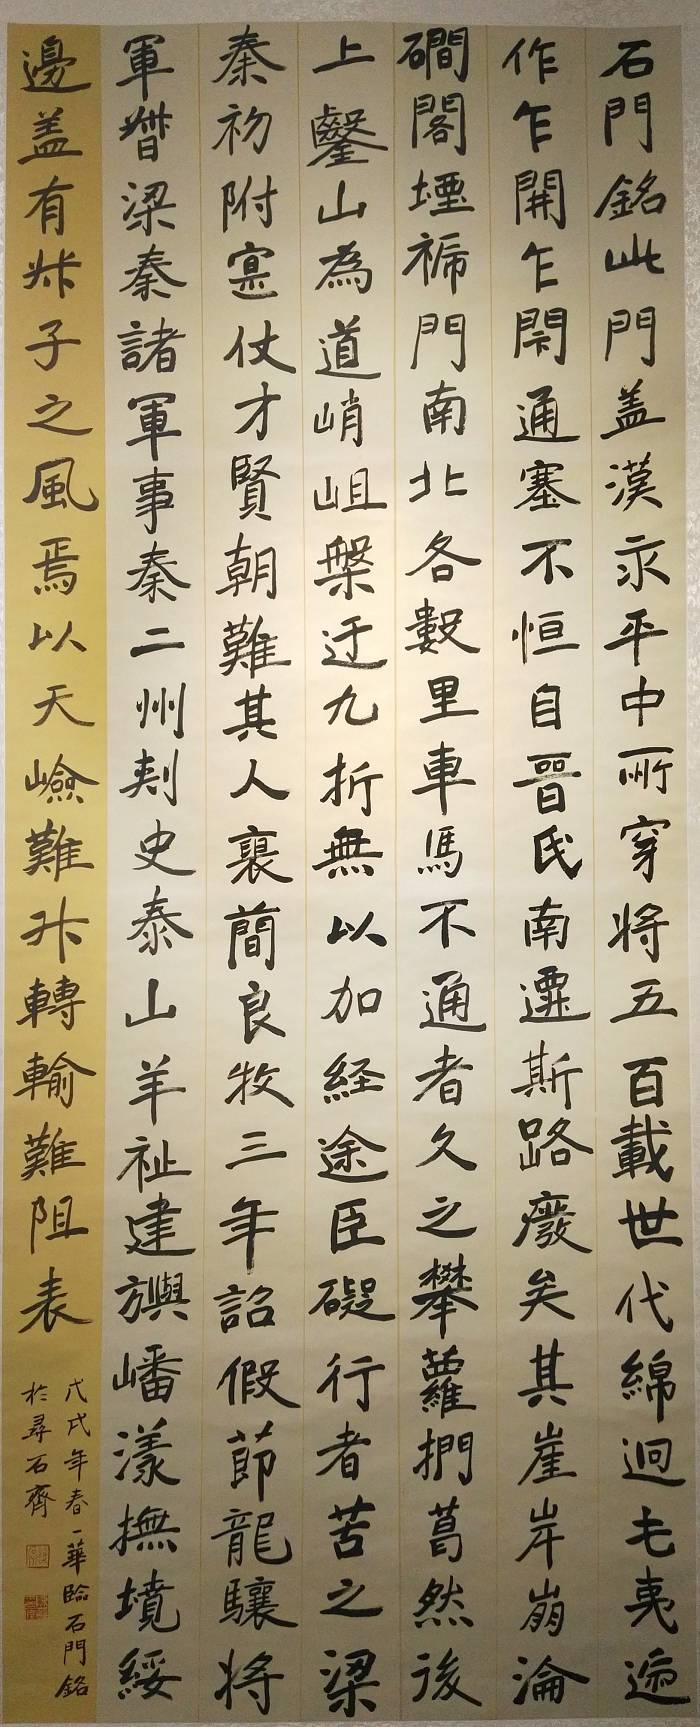 石門銘此門蓋漢永平中所穿將五百載世代綿迴屯夷遞
作乍開乍閉通塞不恒自晉氏南遷斯路廢矣其崖岸崩淪
磵閣堙褫門南北各數里車馬不通者久之攀蘿捫葛然後
上鑿山為道峭岨槃迂九折無以加経途巨礙行者苦之梁
秦初附寔仗才賢朝難其人褒簡良牧三年詔假節龍驤將
軍督梁秦諸軍事秦二州刺史泰山羊祉建旟嶓漾撫境綏
邊盖有叔子之風焉以天嶮難升轉輸難阻表
戊戌年春一華臨石門銘
於尋石齊